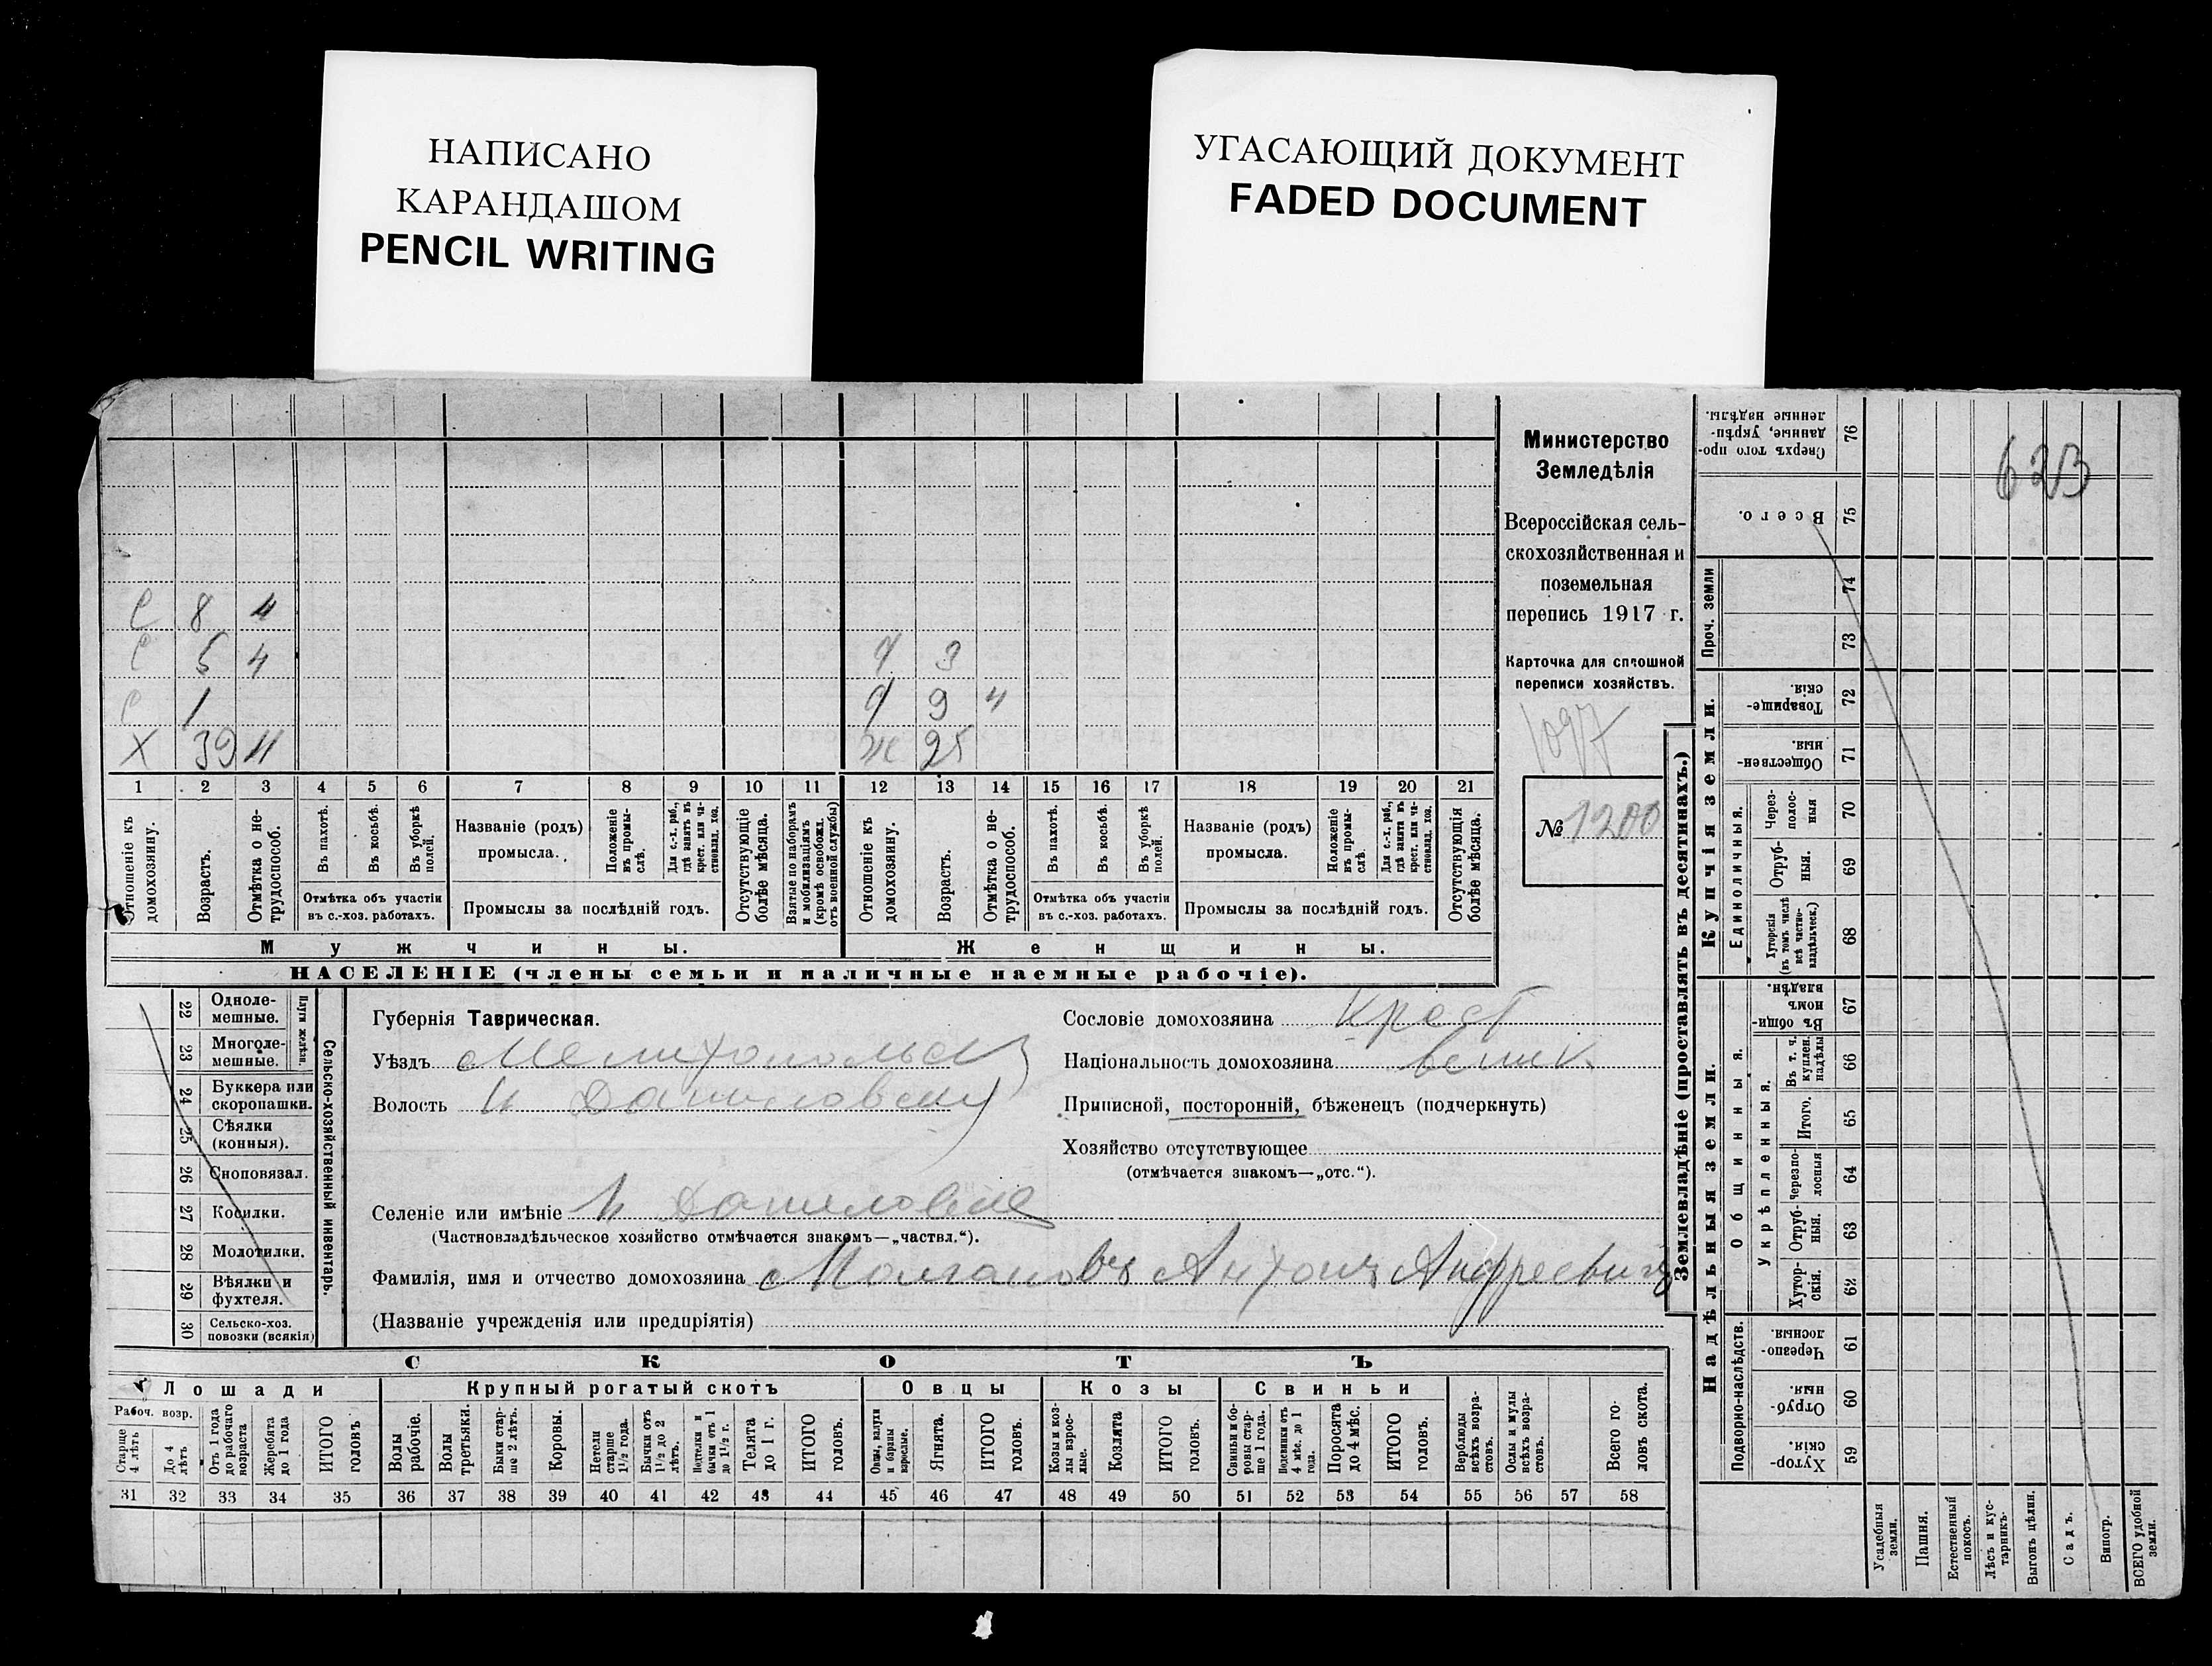 НАПИСАНО
КАРАНДАШОМ
PENCIL WRITING
УГАСАЮЩИЙ ДОКУМЕНТ
FADED DOCUMENT
С 8 4
С 5 4
С 1
Х 39 4
Ч 3
Ч 9 4
Ж 25
1 2 3 4 5 6 7 8 9 10 11 12 13 14 15 16 17 18 19 20 21
Отношеніе къ домохозяину.
Возрастъ.
Отмѣтка о не-трудоспособ.
Въ пахотѣ.
Въ косьбѣ.
Въ уборкѣ полей.
Отмѣтка объ участіи
въ с.-хоз. работахъ.
Названіе (родъ)
промысла.
Положеніе въ промы-слѣ.
Для с.-х. раб., гдѣ занятъ въ крест. или ча-стновлад. хоз.
Промыслы за послѣдній годъ.
Отсутствующіе болѣе мѣсяца.
Взятые по наборамъ и мобилизаціямъ (кромѣ освобожд. отъ военной службы)
Отношеніе къ домохозяину.
Возрастъ.
Отмѣтка о не-трудоспособ.
Въ пахотѣ.
Въ косьбѣ.
Въ уборкѣ полей.
Отмѣтка объ участіи
въ с.-хоз. работахъ.
Названіе (родъ)
промысла.
Положеніе въ промы-слѣ.
Для с.-х. раб., гдѣ занята въ крест. или ча-стновлад. хоз.
Промыслы за послѣдній годъ.
Отсутствующія болѣе мѣсяца.
Мужчины.
Женщины.
НАСЕЛЕНІЕ (члены семьи и наличные наемные рабочіе).
Министерство
Земледѣлія
Всероссійская сель-
скохозяйственная и
поземельная
перепись 1917 г.
Карточка для сплошной
переписи хозяйствъ.
1097
№ 1200
22 Одноле-мешные.
23 Многоле-мешные.
Плуги желѣзн.
24 Буккера или скоропашки.
25 Сѣялки (конныя).
26 Сноповязал.
27 Косилки.
28 Молотилки.
29 Вѣялки и фухтеля.
30 Сельско-хоз. повозки (всякія)
Сельско-хозяйственный инвентарь.
Губернія Таврическая.
Уѣздъ Мелитопольск
Волость Н Даниловск
Селеніе или имѣніе Н Даниловка
(Частновладѣльческое хозяйство отмѣчается знакомъ—„частвл.“).
Фамилія, имя и отчество домохозяина Молгановъ Антонъ Андреевичъ
(Названіе учрежденія или предпріятія)
Сословіе домохозяина Крест
Національность домохозяина велик.
Приписной, посторонній, бѣженецъ (подчеркнуть)
Хозяйство отсутствующее
(отмѣчается знакомъ—„отс.“).
СКОТЪ
Лошади
Рабоч. возр.
Старше 4 лѣтъ
До 4 лѣтъ
Отъ 1 года до рабочаго возраста
Жеребята до 1 года
ИТОГО головъ
Крупный рогатый скотъ
Волы рабочіе.
Волы третьяки.
Быки стар-ше 2 лѣтъ.
Коровы.
Нетели старше 1½ года.
Бычки отъ 1½ до 2 лѣтъ.
Нетелки и бычки отъ 1 до 1½ г.
Телята до 1 г.
ИТОГО головъ.
Овцы
Овцы, валухи и бараны взрослые.
Ягнята.
ИТОГО головъ.
Козы
Козы и коз-лы взрос-лые.
Козлята
ИТОГО головъ.
Свиньи
Свиньи и бо-ровы стар-ше 1 года.
Подсвинки отъ 4 мѣс. до 1 года.
Поросята до 4 мѣс.
ИТОГО головъ.
Верблюды всѣхъ возра-стовъ.
Ослы и мулы всѣхъ возра-стовъ.
Всего го-ловъ скота.
31 32 33 34 35 36 37 38 39 40 41 42 43 44 45 46 47 48 49 50 51 52 53 54 55 56 57 58
Землевладѣніе (проставлять въ десятинахъ.)
623
Сверхъ того про-данные, укрѣп-ленные надѣлы. 76
Всего. 75
Проч. земли
74
73
Купчія земли.
Товарище-скія. 72
Обществен-ныя. 71
Единоличныя.
Через-полос-ныя 70
Отруб-ныя. 69
Хуторскія (въ томъ числѣ всѣ частно-владѣльческ.) 68
Надѣльныя земли.
Общинныя.
Въ общин-номъ владѣн. 67
Укрѣпленныя.
Въ т. ч. куплен. надѣлы 66
Итого. 65
Черезпо-лосныя 64
Отруб-ныя. 63
Хутор-скія. 62
Подворно-наслѣдств.
Черезпо-лосныя. 61
Отруб-ныя. 60
Хутор-скія. 59
Усадебныя земли.
Пашня.
Естественный покосъ.
Лѣсъ и кус-тарникъ.
Выгонъ цѣлин.
Садъ.
Виногр.
ВСЕГО удобной земли.